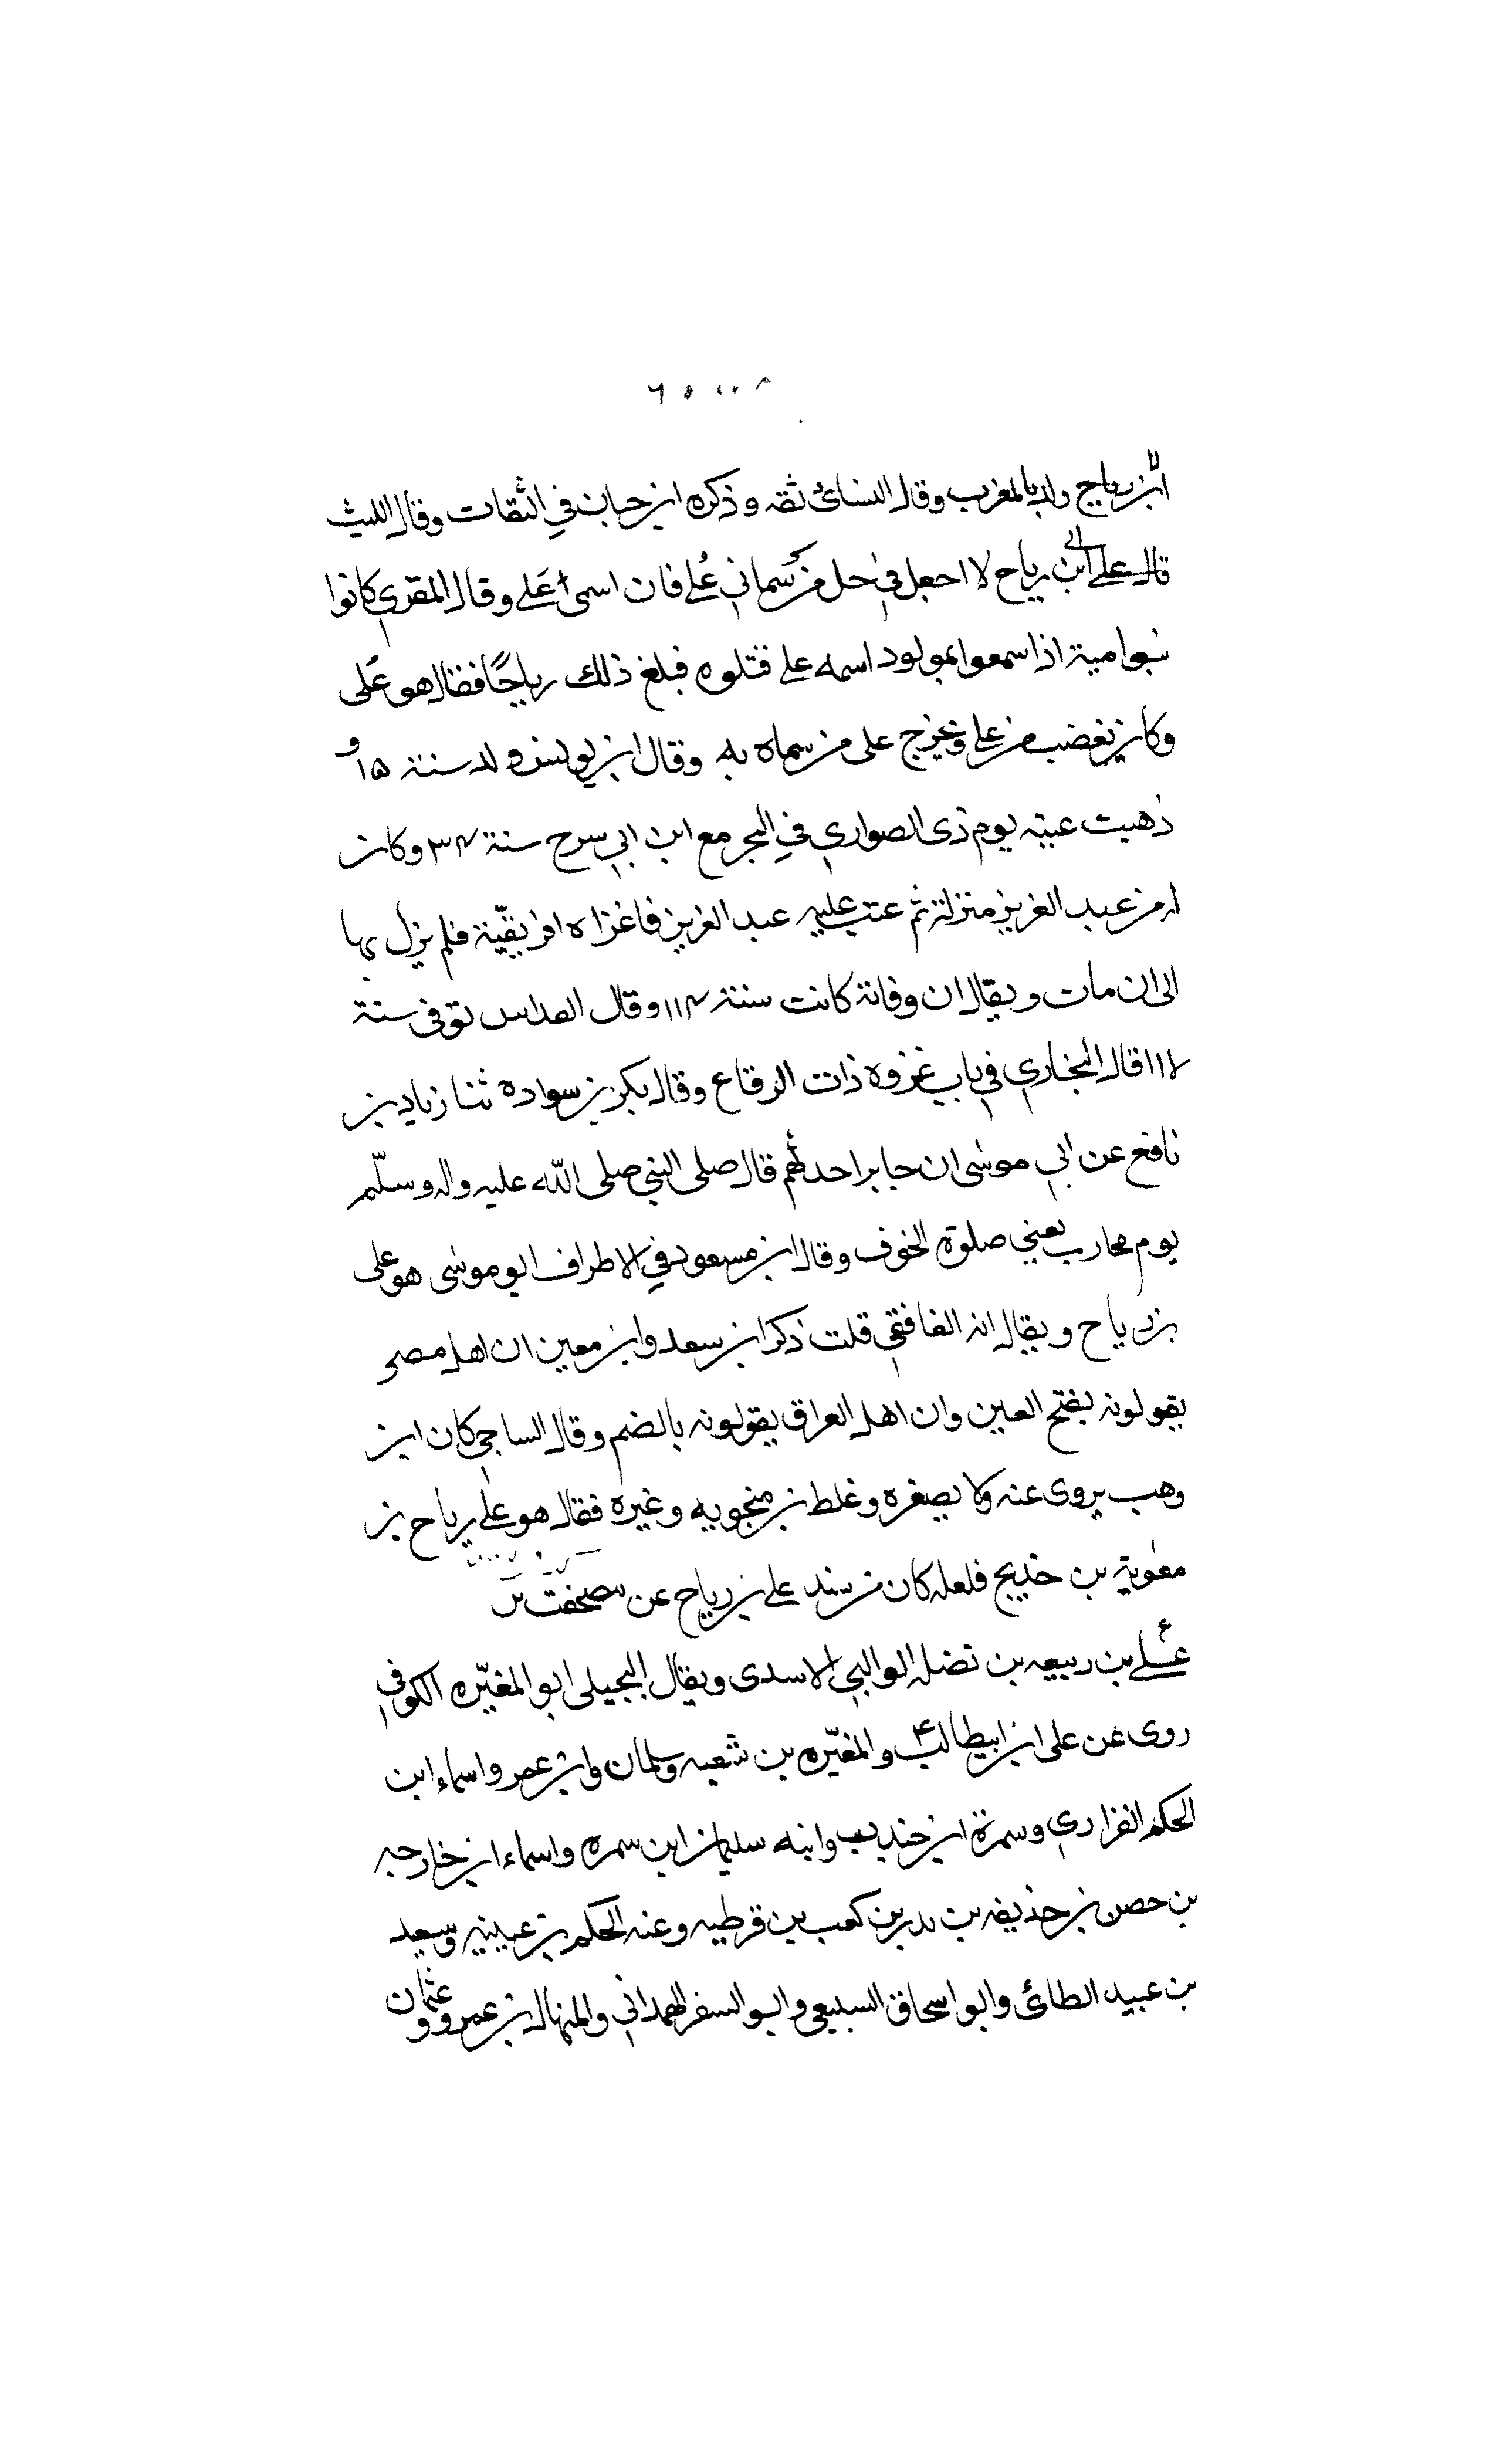 ابن رباح ولد بالمغرب وقال النسائي ثقه وذكره ابن حبان في الثقات وقال الليث
قال علي ابن رباح لا اجعل في حل من سماني عُلي فان اسمي عَلي وقال المقري كانوا
بنوا مية اذا سمعوا بمولود اسمه علي قتلوه فبلغ ذلك رباحًا فقال هو عُلى
وكان يغضب من علي ويخرج على من سماه به وقال ابن يونس ولد سنة ١٥ و
ذهبت عينه يوم ذى الصواري في البحر مع ابن ابي سرح سنة ٣٤ وكان
له من عبد العزيز منزلة ثم عتب عليه عبد العزيز فاغزاه افريقيّة فلم يزل بها
الى ان مات ويقال ان وفاته كانت سنة ١١٤ وقال العداس توفى سنة
١١٧ قال البخاري في باب غزوه ذات الرقاع وقال بكر بن سواده ثنا زياد بن
نافع عن ابي موسى ان جابر احدثهم قال صلى النبي صلى الله عليه واله وسلّم
يوم محارب يعني صلوة الخوف وقال ابن مسعود في الاطراف ابو موسى هو على
بن رياح ويقال انه الغافقي قلت ذكر ابن سعد وابن معين ان اهل مصر
يقولونه بفتح العين وان اهل العراق يقولونه بالضم وقال الساجي كان ابن
وهب يروى عنه ولا يصغره وغلط بن منجويه وغيره فقال هو علي رباح بن
معوية بن خديج فلعله كان من سند علي بن رباح عن
علي بن ربيعه بن نضله الوالبي الاسدى ويقال البجيلى ابو المغيّره الكوفي
روى عن على ابن ابيطالب والمغيّره بن شعبه وسلمان وابن عمر واسماء ابن
الحكم الفزاري وسمرة ابن جندب وابنه سليمان ابن سمره واسماء ابن خارجه
بن حصن بن حذيفه بن بدر بن كعب بن قرظيه وعنه الحكم بن عيينه وسعيد
بن عبيد الطائي وابو اسحاق السبيعي وابو السفر الهمداني والمنهال بن عمرو وعثمان